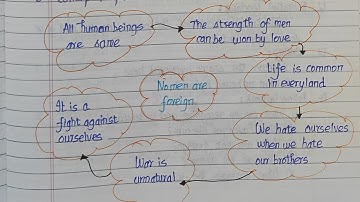 All human beings
are same
The strength of men
can be won by love
Life is common
in every land
No men are
foreign
It is a
fight against
ourselves
We hate ourselves
when we hate
our brothers
War is
unnatural